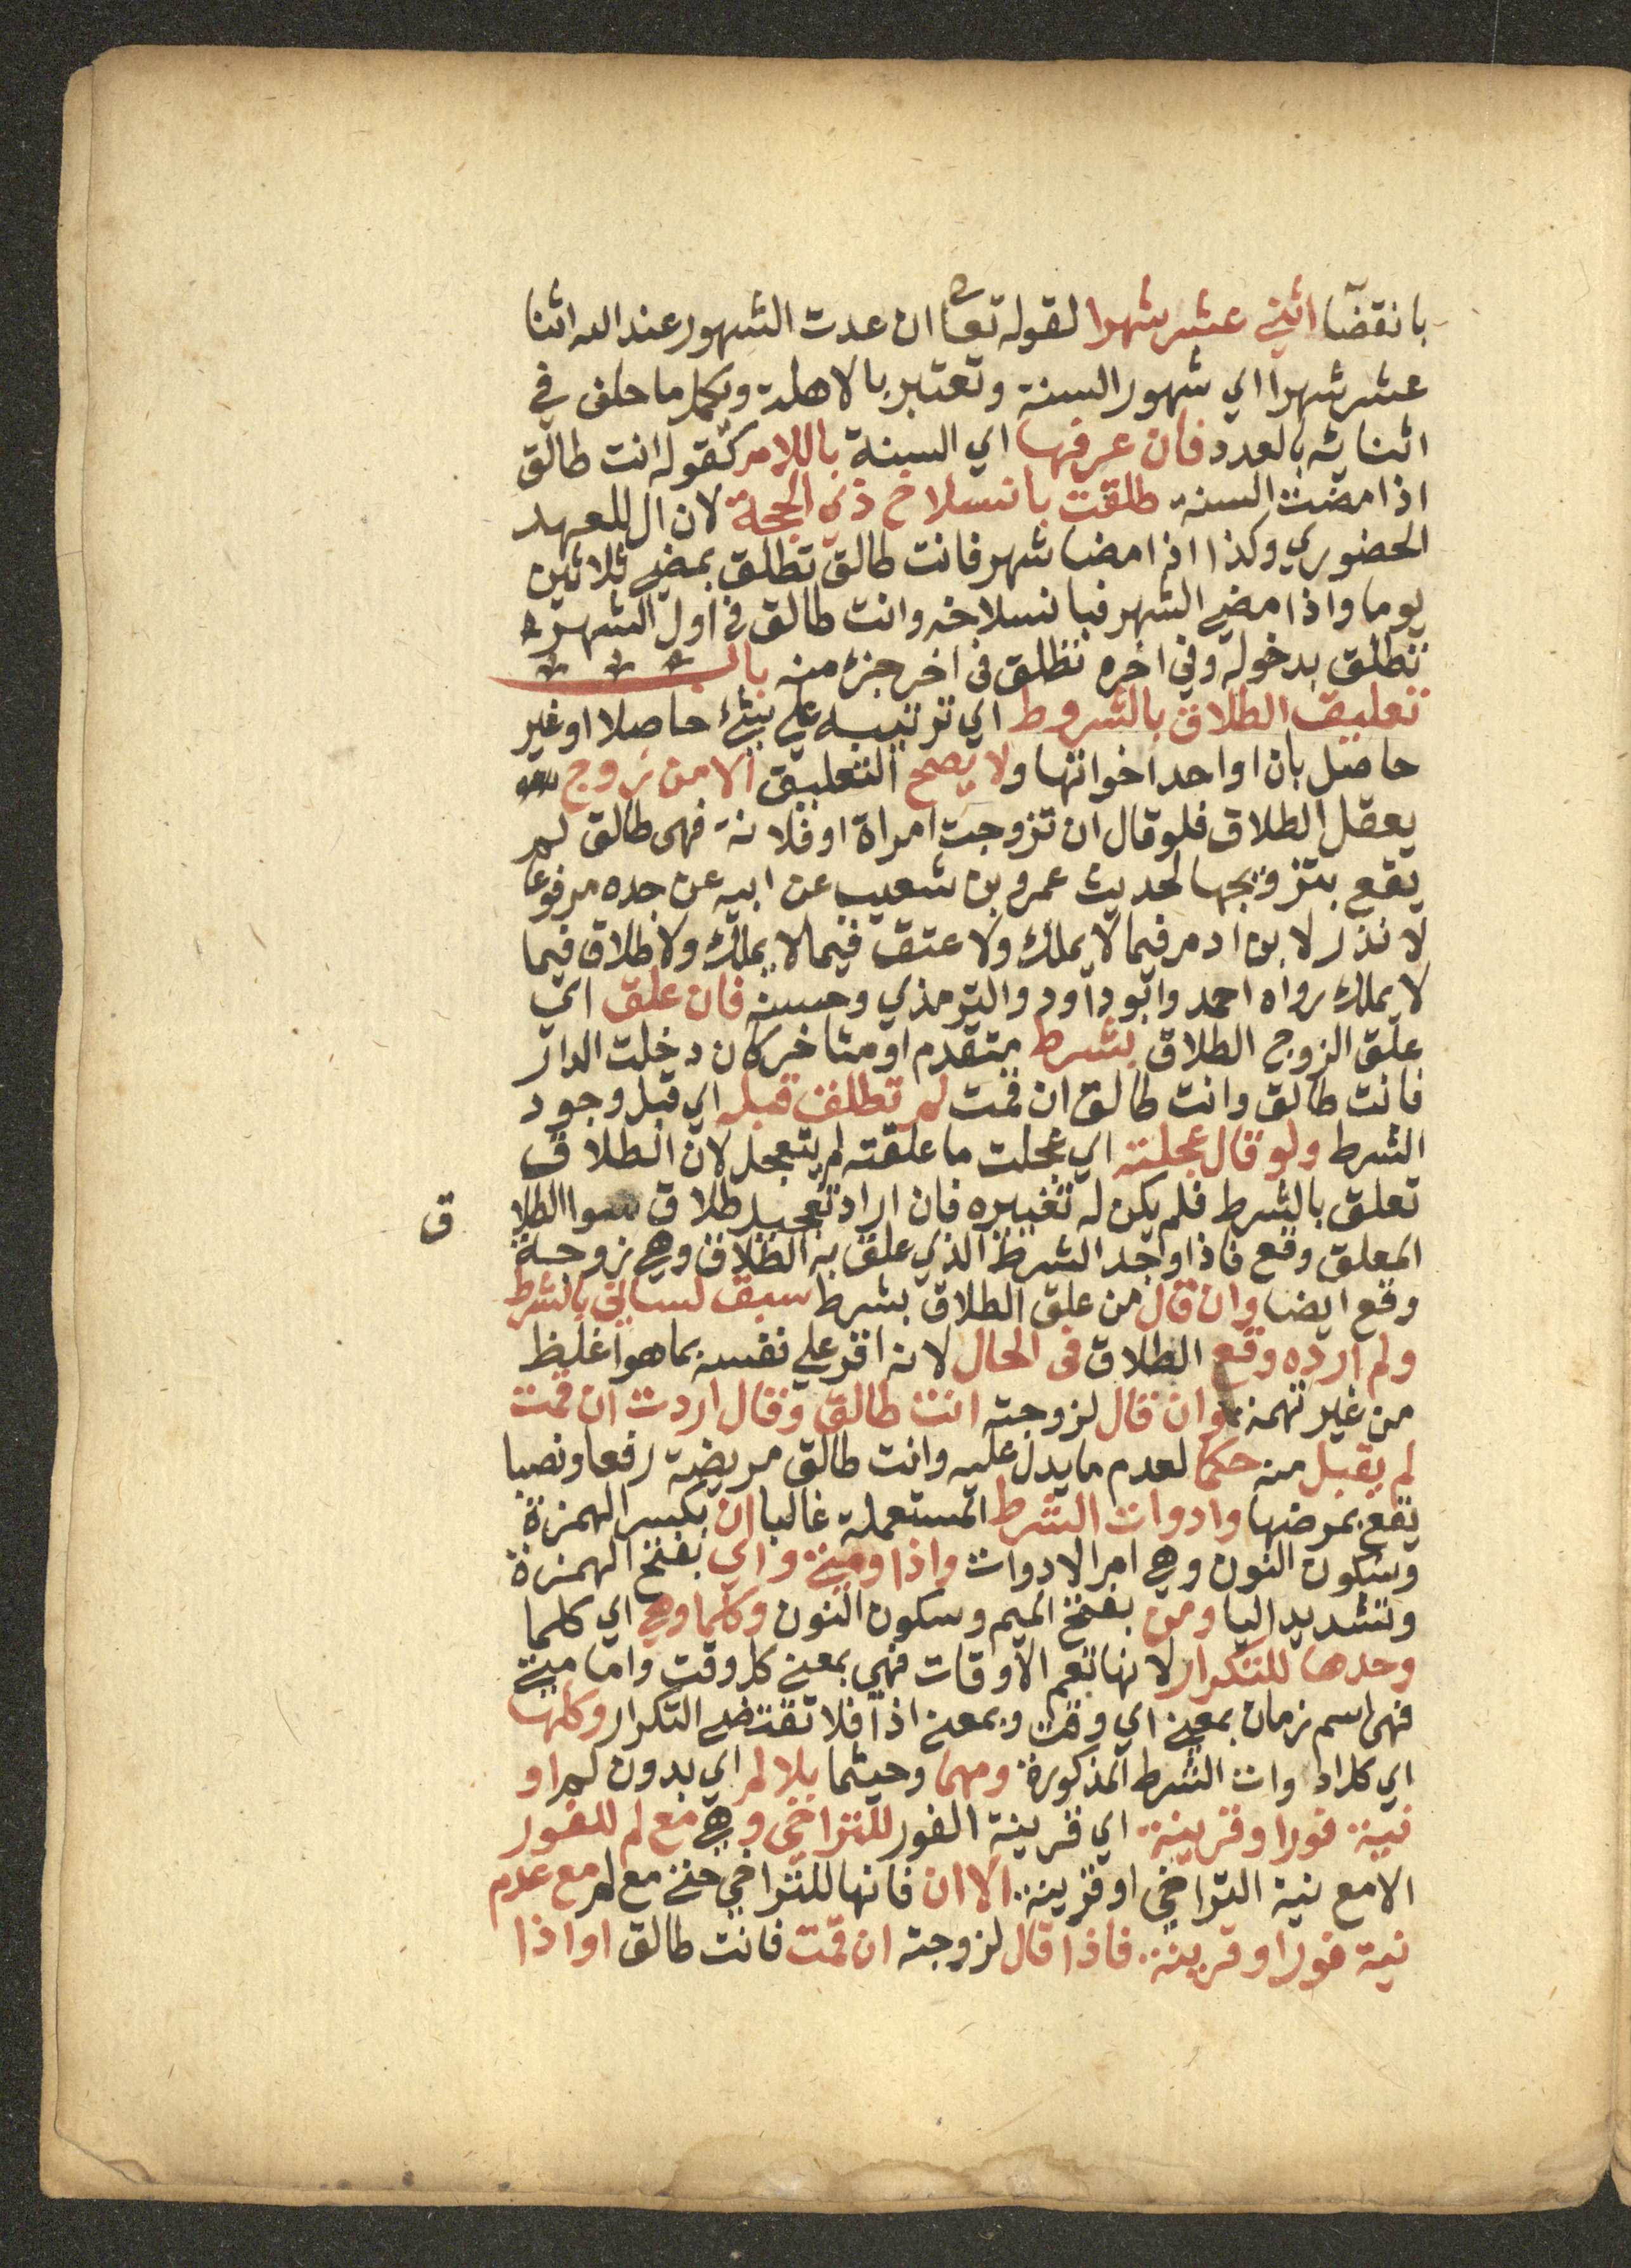 بانقضآ اثني عشر شهرا لقوله تعالى ان عدت الشهور عند الله اثنا
عشر شهرا اي شهور السنة وتعتبر بالاهلة ويكمل ما حلف في
اثنايه بالعدد فان عرفها اي السنة باللام كقوله انت طالق
اذا مضت السنة طلقت بانسلاخ ذي الحجة لان ال للعهد
الحضوري وكذا اذا مضا شهر فانت طالق تطلق بمضي ثلاثين
يوما واذا مضي الشهر فبانسلاخه وانت طالق في اول الشهر
تطلق بدخوله وفي اخره تطلق في اخر جزء منه باب
تعليق الطلاق بالشروط اي ترتيبه علي شيء حاصلا او غير
حاصل بان او احد اخواتها ولا يصح التعليق الا من زوج
يعقل الطلاق فلو قال ان تزوجت امراة او فلانة فهى طالق لم
يقع بتزويجها لحديث عمرو بن شعيب عن ابيه عن جده مرفوعا
لا نذر لابن ادم فيما لا يملك ولا عتق فيما لا يملك ولا طلاق فيما
لا يملك رواه احمد وابو داود والترمذي وحسنه فان علق اي
علق الزوج الطلاق بشرط متقدم او متاخر كان دخلت الدار
فانت طالق وانت طالق ان قمت لم تطلق قبله اي قبل وجود
الشرط ولو قال عجلته اي عجلت ما علقته لم يتعجل لان الطلاق
تعلق بالشرط فلم يكن له تغييره فان اراد تعجيل طلاق سوا الطلا ق
المعلق وقع فاذا وجد الشرط الذي علق به الطلاق وهي زوجة
وقع ايضا وان قال من علق الطلاق بشرط سبق لساني بالشرط
ولم ارده وقع الطلاق في الحال لانه اقر علي نفسه بما هو اغلظ
من غير تهمة وان قال لزوجته انت طالق وقال اردت ان قمت
لم يقبل منه حكما لعدم ما يدل عليه وانت طالق مريضة رفعا ونصبا
يقع بمرضها وادوات الشرط المستعملة غالبا ان بكسر الهمزة
وسكون النون وهي ام الادوات واذا ومتى واي بفتح الهمزة
وتشديد اليا ومن بفتح الميم وسكون النون وكلما وهي اي كلما
وحدها للتكرار لانها تعم الاوقات فهي بمعنى كل وقت واما متى
فهى اسم زمان بمعنى اي وقت وبمعنى اذا فلا تقتضي التكرار وكلها
اي كل ادوات الشرط المذكورة ومهما وحيثما بلا لم اي بدون لم او
نية فورا وقرينة اي قرينة الفور للتراخي وهي مع لم للفور
الا مع نية التراخي او قرينة الا ان فانها للتراخي حتى مع لم مع عدم
نية فورا وقرينة فاذا قال لزوجته ان قمت فانت طالق او اذا